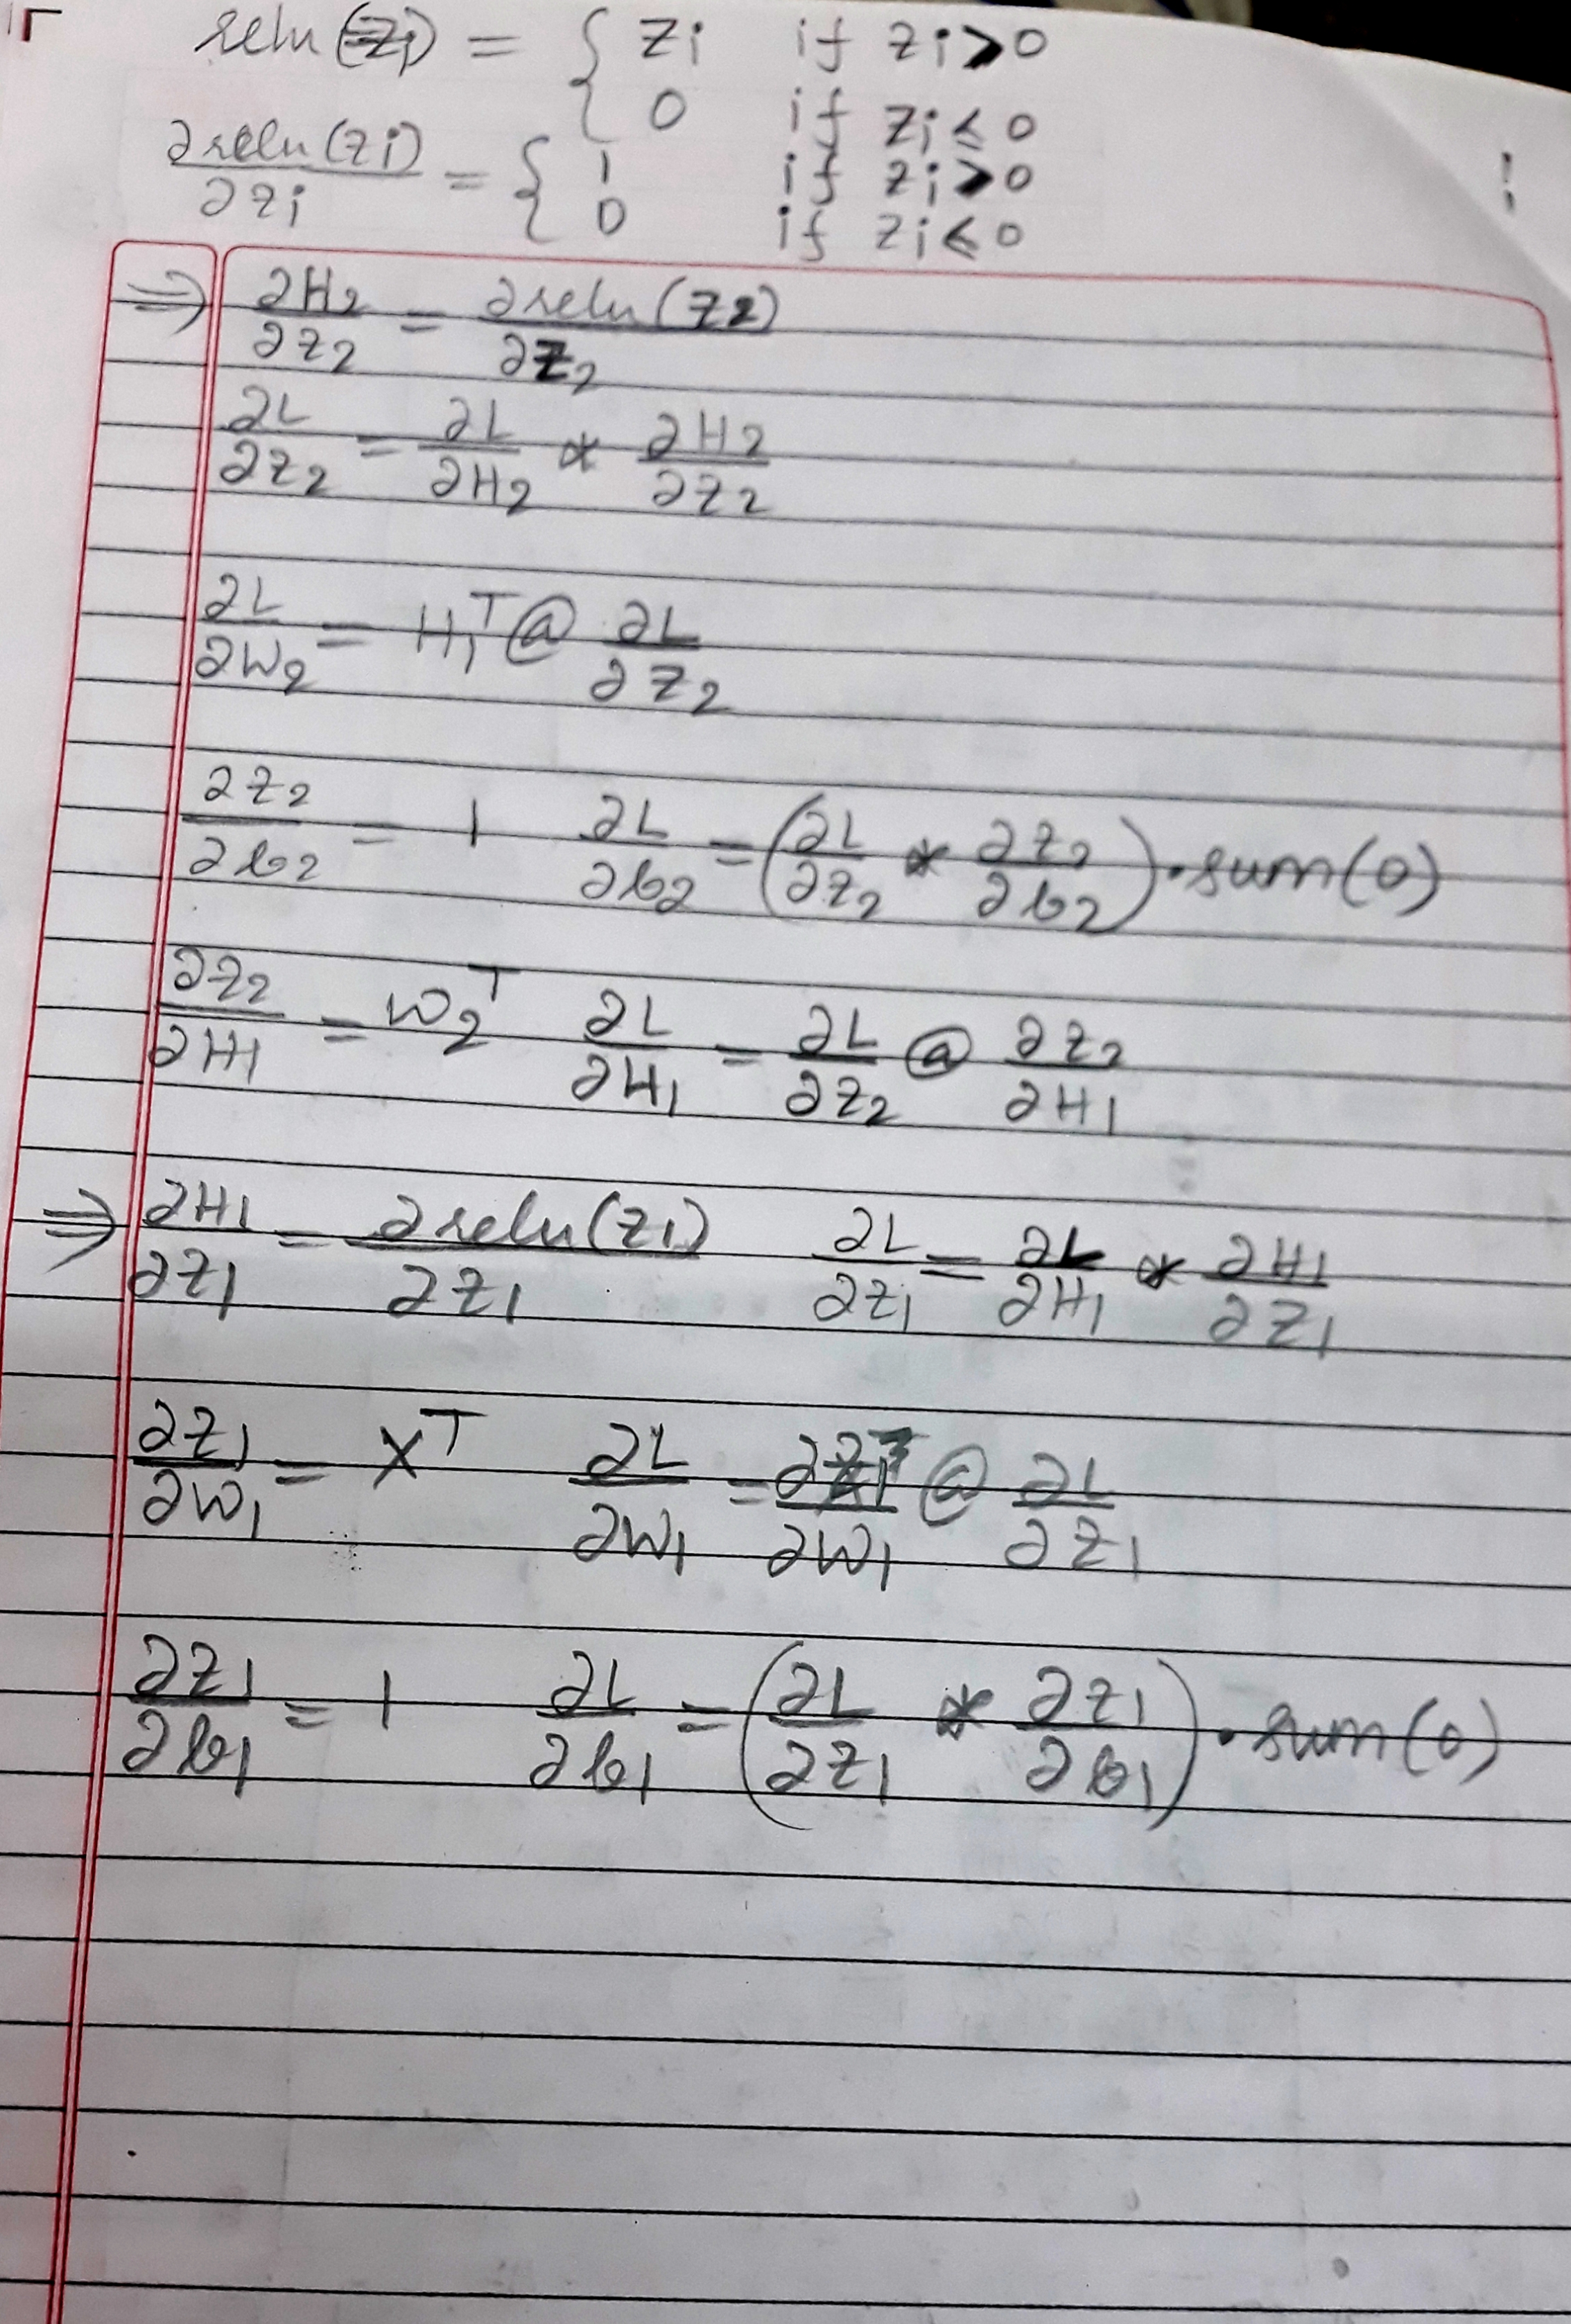 relu(zi) = { zi if zi > 0
0 if zi ≤ 0
∂relu(zi)/∂zi = { 1 if zi > 0
0 if zi ≤ 0
!
⇒ ∂H2/∂z2 = ∂relu(z2)/∂z2
∂L/∂z2 = ∂L/∂H2 * ∂H2/∂z2
∂L/∂W2 = H1^T @ ∂L/∂z2
∂z2/∂b2 = 1 ∂L/∂b2 = (∂L/∂z2 * ∂z2/∂b2).sum(0)
∂z2/∂H1 = W2^T ∂L/∂H1 = ∂L/∂z2 @ ∂z2/∂H1
⇒ ∂H1/∂z1 = ∂relu(z1)/∂z1 ∂L/∂z1 = ∂L/∂H1 * ∂H1/∂z1
∂z1/∂W1 = X^T ∂L/∂W1 = ∂z1/∂W1 @ ∂L/∂z1
∂z1/∂b1 = 1 ∂L/∂b1 = (∂L/∂z1 * ∂z1/∂b1).sum(0)